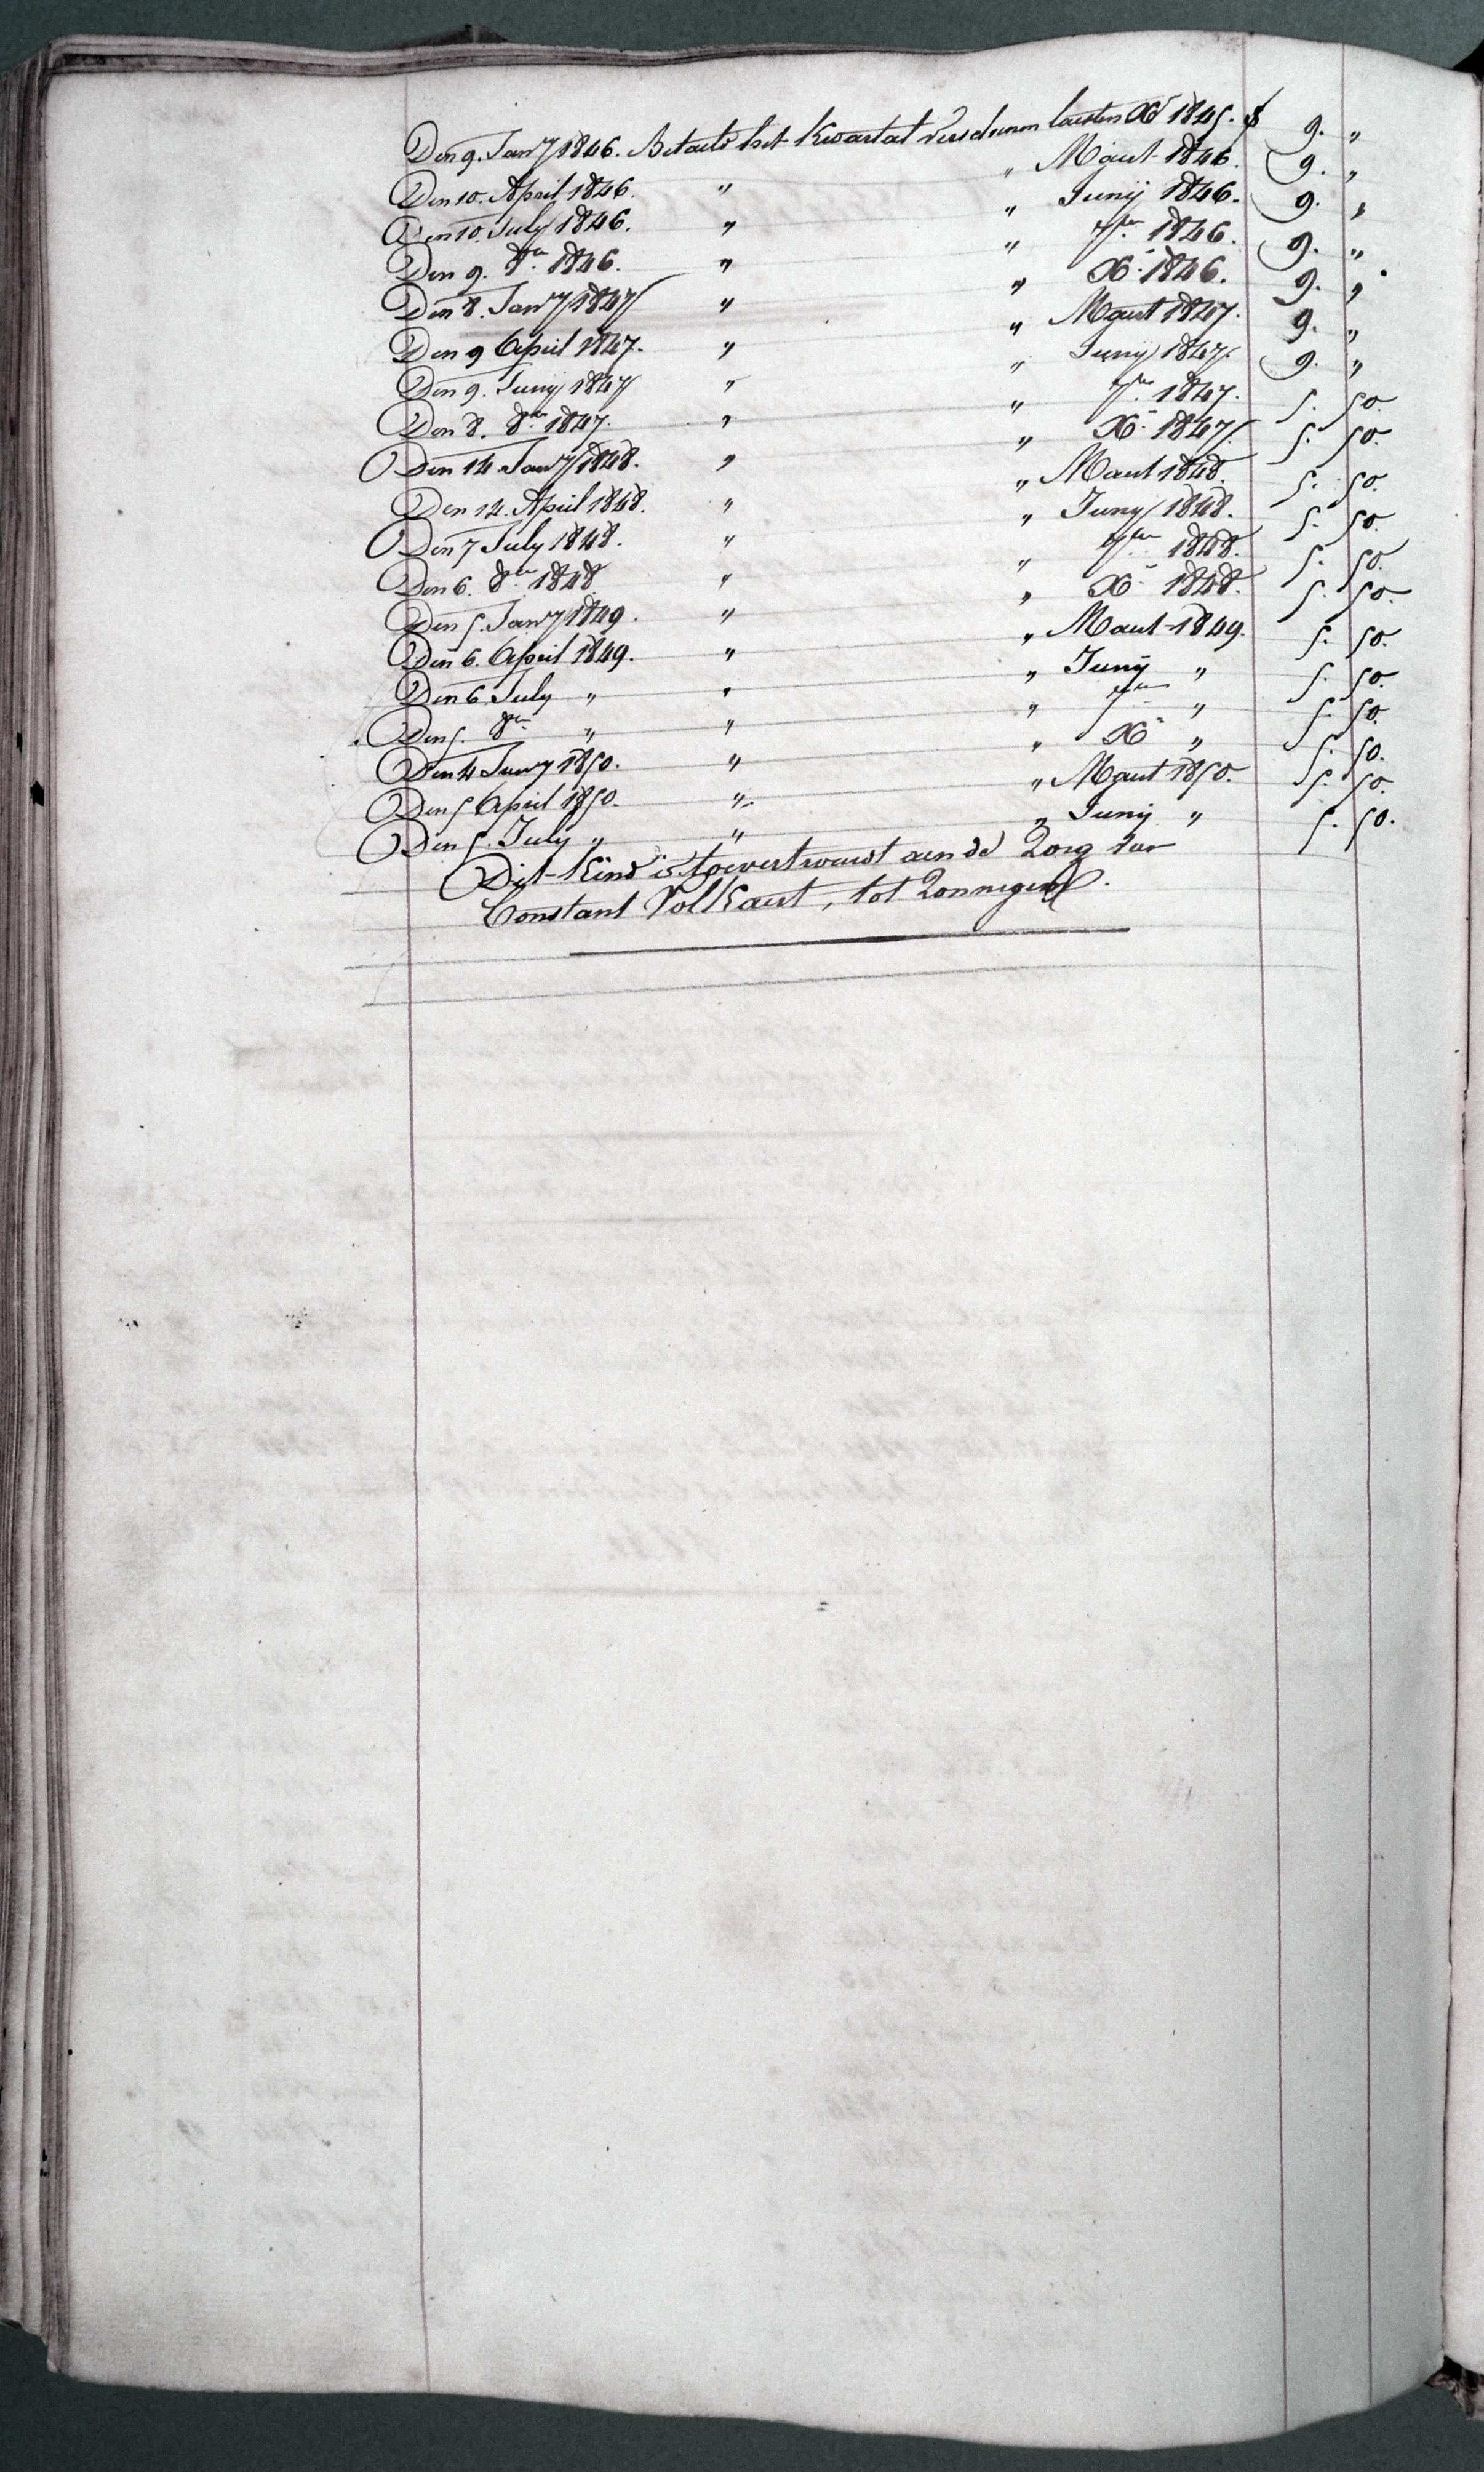 Den 9. Jany 1846. Betaelt het Kwartael verschenen laesten Xr 1845. f 9. "
Den 10. April 1846. " " Maert 1846. 9. "
Den 10. July 1846. " " Junij 1846. 9. "
Den 9. 8er 1846. " " 7er 1846. 9. "
Den 8. Jany 1847 " " Xr 1846. 9. "
Den 9 April 1847. " " Maert 1847. 9. "
Den 9. Junij 1847 " " Junij 1847. 9. "
Den 8. 8er 1847. " " 7er 1847. 5. 50.
Den 14 Jany 1848. " " Xr 1847. 5. 50.
Den 14. April 1848. " " Maert 1848. 5. 50.
Den 7 July 1848. " " Juny 1848. 5. 50.
Den 6. 8er 1848 " " 7er 1848. 5. 50.
Den 5. Jany 1849. " " Xr 1848. 5. 50.
Den 6. April 1849. " " Maert 1849. 5. 50.
Den 6 July " " " Junij " 5. 50.
Den 5. 8er " " " 7er " 5. 50.
Den 4 Jany 1850. " " Xr " 5. 50.
Den 5 April 1850. " " Maert 1850. 5. 50.
Den 5. July " " " Junij " 5. 50.
Dit Kind is toevertrouwd aen de Zorg van
Constant Volkaert, tot Zonnegem.